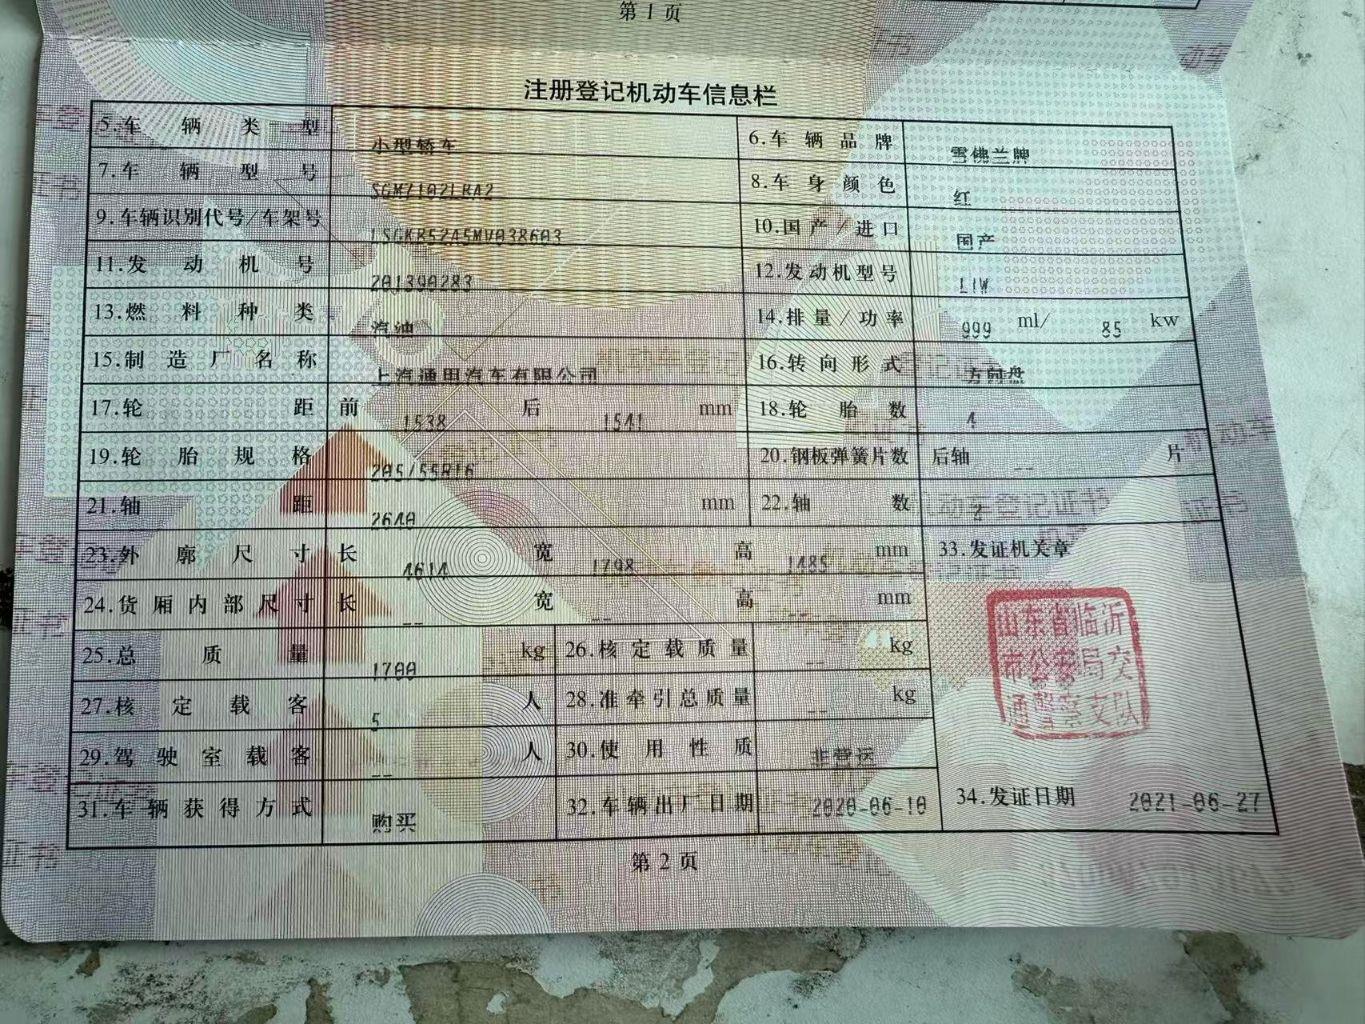 第1页
注册登记机动车信息栏
5.车辆类型 小型轿车 6.车辆品牌 雪佛兰牌
7.车辆型号 SGM7102LBA2 8.车身颜色 红
9.车辆识别代号/车架号 LSGKR52A5MV038603 10.国产/进口 国产
11.发动机号 201390283 12.发动机型号 LIW
13.燃料种类 汽油 14.排量/功率 999 ml/ 85 kw
15.制造厂名称 上汽通用汽车有限公司 16.转向形式 方向盘
17.轮距 前 1538 后 1541 mm 18.轮胎数 4
19.轮胎规格 205/55R16 20.钢板弹簧片数 后轴 -- 片
21.轴距 2640 mm 22.轴数 2
23.外廓尺寸 长 4614 宽 1798 高 1485 mm 33.发证机关章
24.货厢内部尺寸 长 -- 宽 -- 高 -- mm
山东省临沂
市公安局交
通警察支队
25.总质量 1700 kg 26.核定载质量 -- kg
27.核定载客 5 人 28.准牵引总质量 -- kg
29.驾驶室载客 -- 人 30.使用性质 非营运
31.车辆获得方式 购买 32.车辆出厂日期 2020-06-10 34.发证日期 2021-06-27
第2页